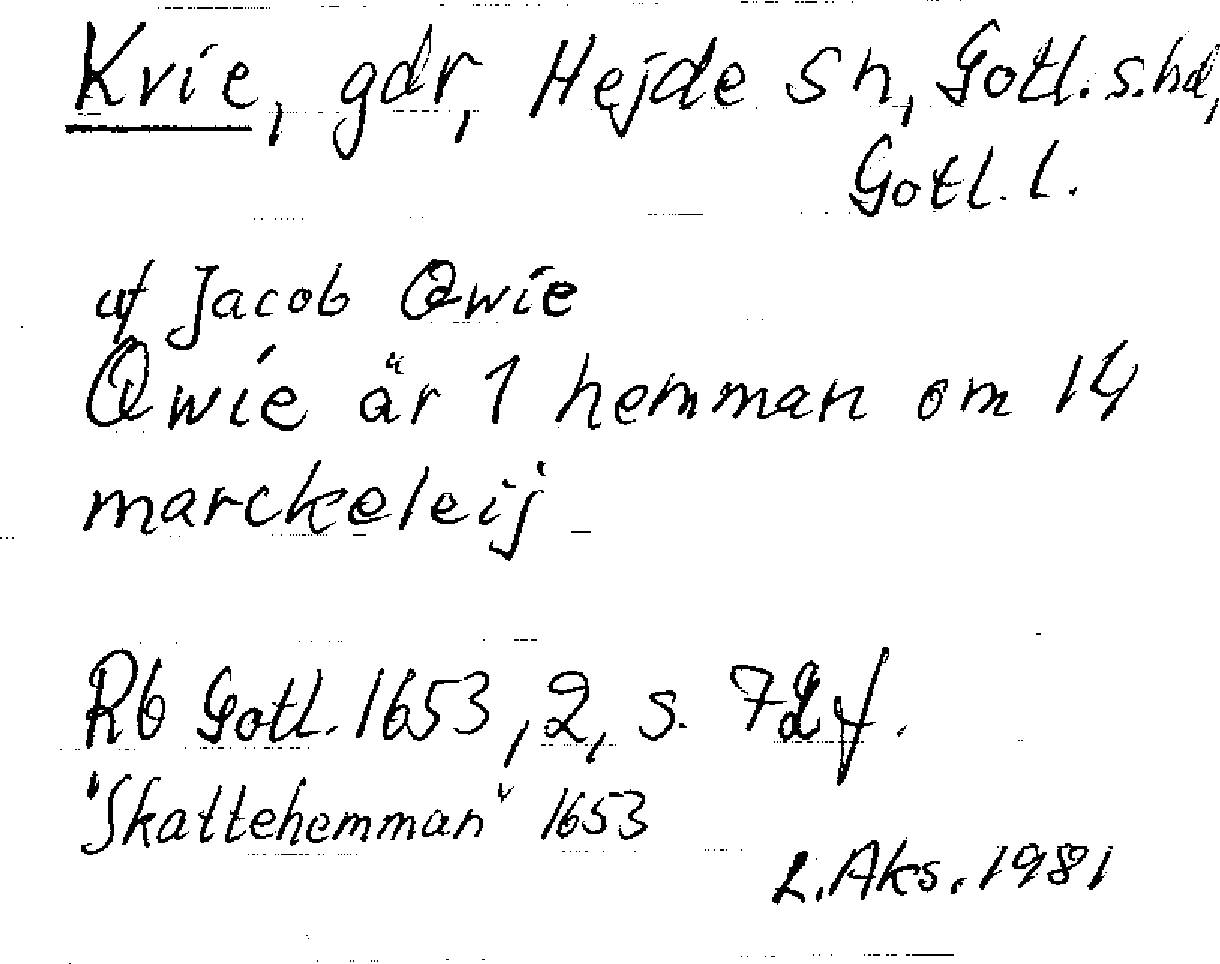 Kvie, gdr, Hejde sn, Gotl. s. hd,
Gotl. l.
af Jacob Qwie
Qwie är 1 hemman om 14
marckeleij
Rb Gotl. 1653, 2, s. 72 f.
"Skattehemman" 1653
L. Aks. 1981